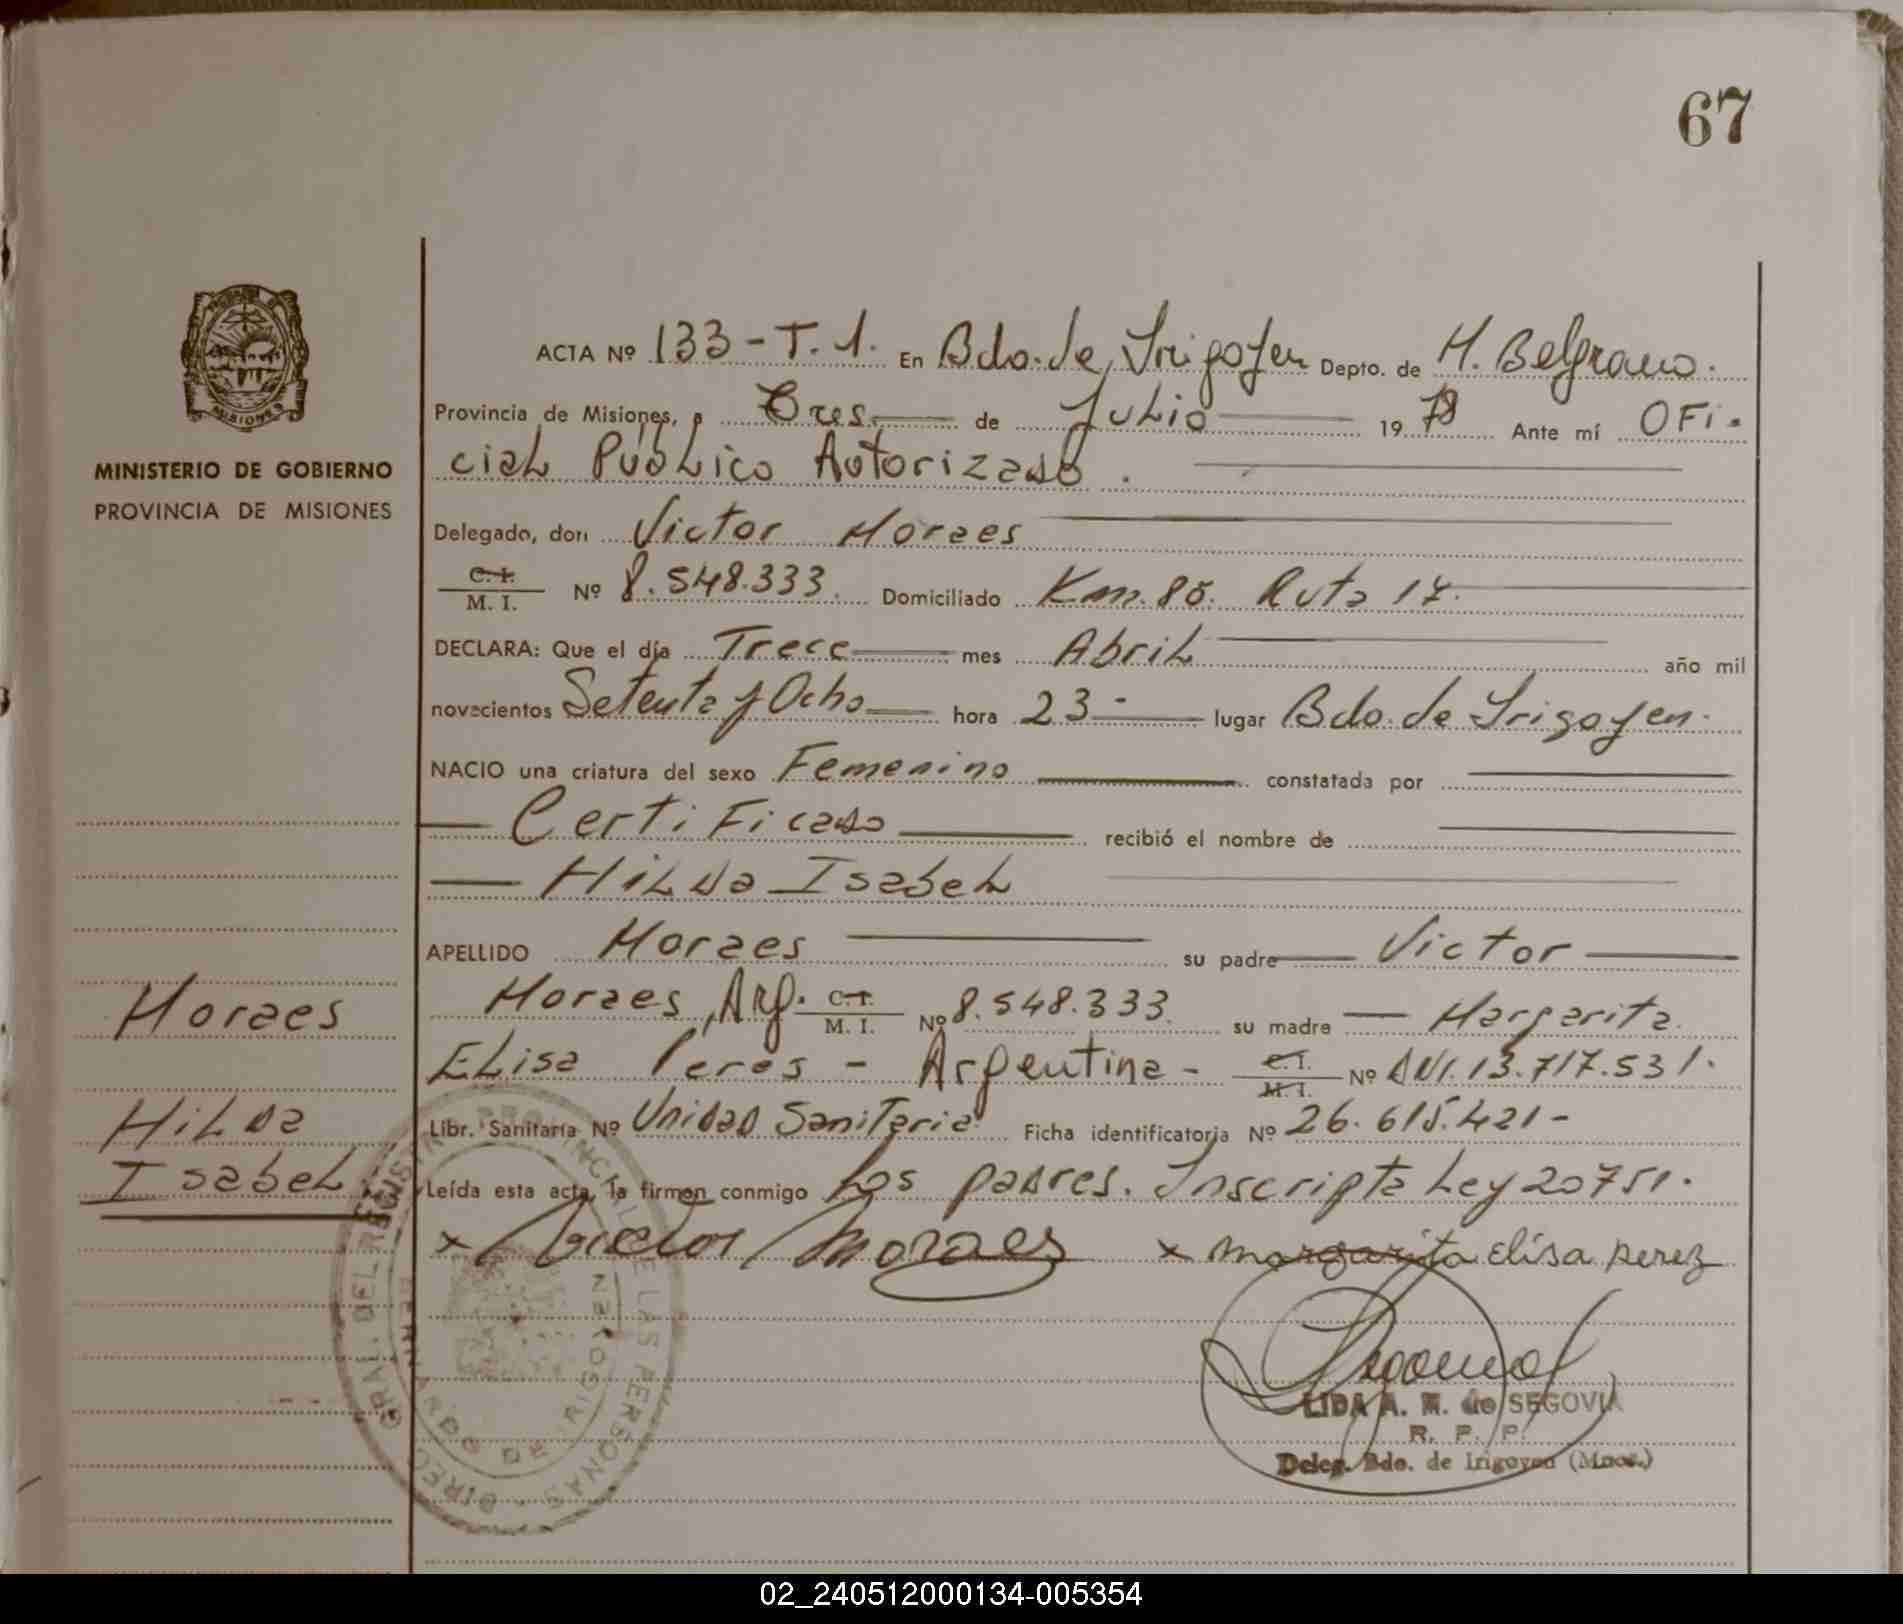 67
MINISTERIO DE GOBIERNO
PROVINCIA DE MISIONES
ACTA Nº 133-T.1. En Bdo. de Irigoyen Depto. de M. Belgrano.
Provincia de Misiones, a Tres de Julio 1978 Ante mí OFi-
ciaL PubLico Autorizado.
Delegado, don Victor Moraes
C.I. / M. I. Nº 8.548.333. Domiciliado Km. 80. Ruta 17.
DECLARA: Que el día Trece mes AbriL año mil
novecientos Setenta y Ocho hora 23- lugar Bdo. de Irigoyen.
NACIO una criatura del sexo Femenino constatada por
CertiFicado recibió el nombre de
HiLda IsabeL
APELLIDO Moraes su padre Victor
Moraes, Arg. C.I. / M. I. Nº 8.548.333. su madre Margarita
ELisa Peres - Argentina - C.I. / M.I. Nº DNI. 13.717.531.
Libr. Sanitaria Nº Unidad Sanitaria Ficha identificatoria Nº 26.615.421-
Leída esta acta, la firman conmigo Los padres. Inscripta Ley 20751.
x Victor Moraes x margarita elisa perez
Moraes
HiLda
IsabeL
DIREC. GRAL. DEL REGISTRO PROVINCIAL DE LAS PERSONAS
BERNARDO DE IRIGOYEN
LIDA A. de SEGOVIA
R. P. P.
Deleg. Bdo. de Irigoyen (Mnes.)
02_240512000134-005354